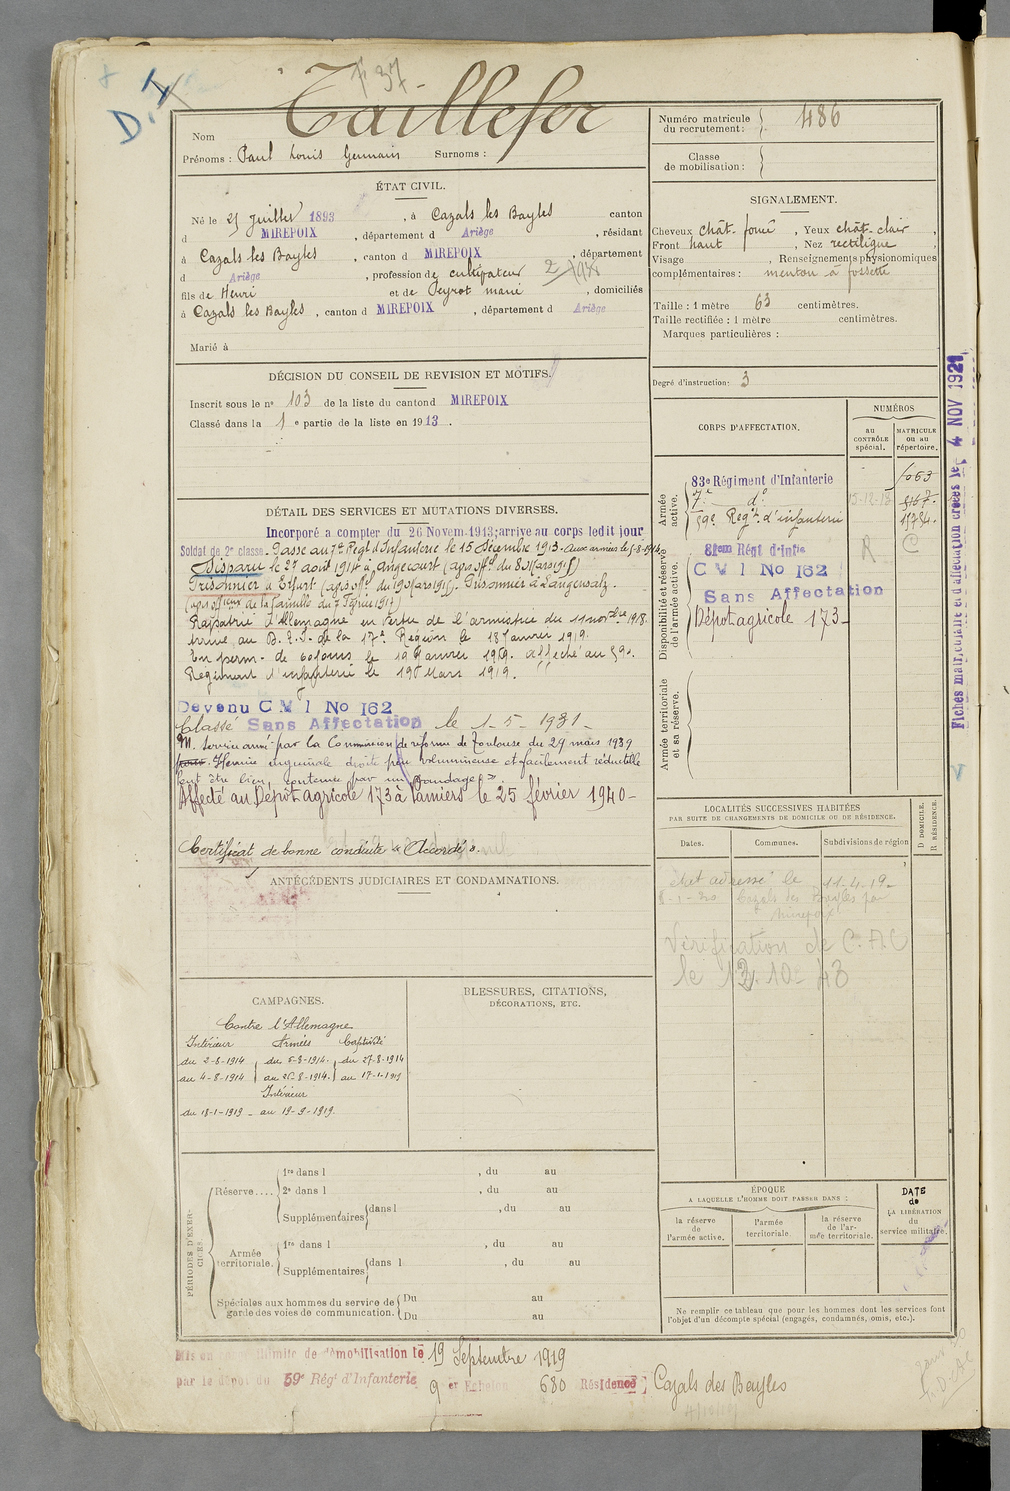 F 37-
D.I
Nom Taillefer
Prénoms : Paul Louis Germain Surnoms :
Numéro matricule du recrutement : 486
Classe de mobilisation :
ÉTAT CIVIL.
Né le 21 Juillet 1893, à Cazals les Bayles canton
d MIREPOIX, département d Ariège, résidant
à Cazals les Bayles, canton d MIREPOIX, département
d Ariège, profession de cultivateur
fils de Henri et de Peyrot marie, domiciliés
à Cazals les Bayles, canton d MIREPOIX, département d Ariège
Marié à
SIGNALEMENT.
Cheveux chât. foncé, Yeux chât-clair,
Front haut, Nez rectiligne,
Visage , Renseignements physionomiques
complémentaires : menton à fossette
Taille : 1 mètre 63 centimètres.
Taille rectifiée : 1 mètre centimètres.
Marques particulières :
Degré d'instruction : 3
DÉCISION DU CONSEIL DE REVISION ET MOTIFS.
Inscrit sous le nº 103 de la liste du canton d MIREPOIX
Classé dans la 1e partie de la liste en 1913.
CORPS D'AFFECTATION.
NUMÉROS
au CONTRÔLE spécial.
MATRICULE ou au répertoire.
Armée active.
83e Régiment d'Infanterie 1063
7e dº 15-12-13 5167.
59e Regt d'infanterie 15784.
Disponibilité et réserve de l'armée active.
81em Régt d'infie R C
C M I No 162
Sans Affectation
Dépot agricole 173-
Armée territoriale et sa réserve.
Fiches matricules et d'affectation créées le 4 NOV 1921
DÉTAIL DES SERVICES ET MUTATIONS DIVERSES.
Incorporé a compter du 26 Novem. 1913; arrive au corps ledit jour
Soldat de 2e classe. Passe au 7e Regt d'Infanterie le 15 Décembre 1913. Aux armées le 5-8-1914.
Disparu le 27 août 1914 à Angecourt (avis offel du 8 Mars 1915)
Prisonnier à Erfurt (avis offel du 19 Mars 1915). Prisonnier à Langensalz.
Rapatrié d'Allemagne en vertu de l'armistice du 11 novbre 1918.
Arrivé au D. T. I. de la 17e Région le 18 Janvier 1919.
En perm. de 60 jours le 19 Janvier 1919. affecté au 59e
Régiment d'infanterie le 19 Mars 1919.
Devenu C M I No 162
Classé Sans Affectation le 1-5-1931-
M. Service armé par la Commission de réforme de Toulouse du 29 mars 1939
Hernie inguinale droite peu volumineuse et facilement réductible
peut être bien contenue par un bandage »
Affecté au Dépôt agricole 173 à Pamiers le 25 février 1940-
Certificat de bonne conduite « Accordé ».
LOCALITÉS SUCCESSIVES HABITÉES
PAR SUITE DE CHANGEMENTS DE DOMICILE OU DE RÉSIDENCE.
Dates. Communes. Subdivisions de région
D DOMICILE. R RÉSIDENCE.
adressé le 11-4-19-
8-1-20 Cazals des Bayles par
Mirepoix
Vérification de C.A.C
le 13. 10- 43
ANTÉCÉDENTS JUDICIAIRES ET CONDAMNATIONS.
CAMPAGNES.
Contre l'Allemagne
Intérieur Armées Captivité
du 2-8-1914 du 5-8-1914. du 27-8-1914
au 4-8-1914 au 26-8-1914. au 17-1-1919
Intérieur
du 18-1-1919 - au 19-9-1919.
BLESSURES, CITATIONS,
DÉCORATIONS, ETC.
PÉRIODES D'EXERCICES
Réserve....
1re dans l , du au
2e dans l , du au
Supplémentaires dans l , du au
Armée territoriale.
1re dans l , du au
Supplémentaires dans l , du au
Spéciales aux hommes du service de garde des voies de communication.
Du au
Du au
ÉPOQUE
A LAQUELLE L'HOMME DOIT PASSER DANS :
la réserve de l'armée active.
l'armée territoriale.
la réserve de l'armée territoriale.
DATE de LA LIBÉRATION du service militaire.
Ne remplir ce tableau que pour les hommes dont les services font
l'objet d'un décompte spécial (engagés, condamnés, omis, etc.).
Mis en congé illimité de démobilisation le 19 Septembre 1919
par le dépôt du 59e Régt d'Infanterie 9 er Echelon 680 Résidence : Cazals des Bayles